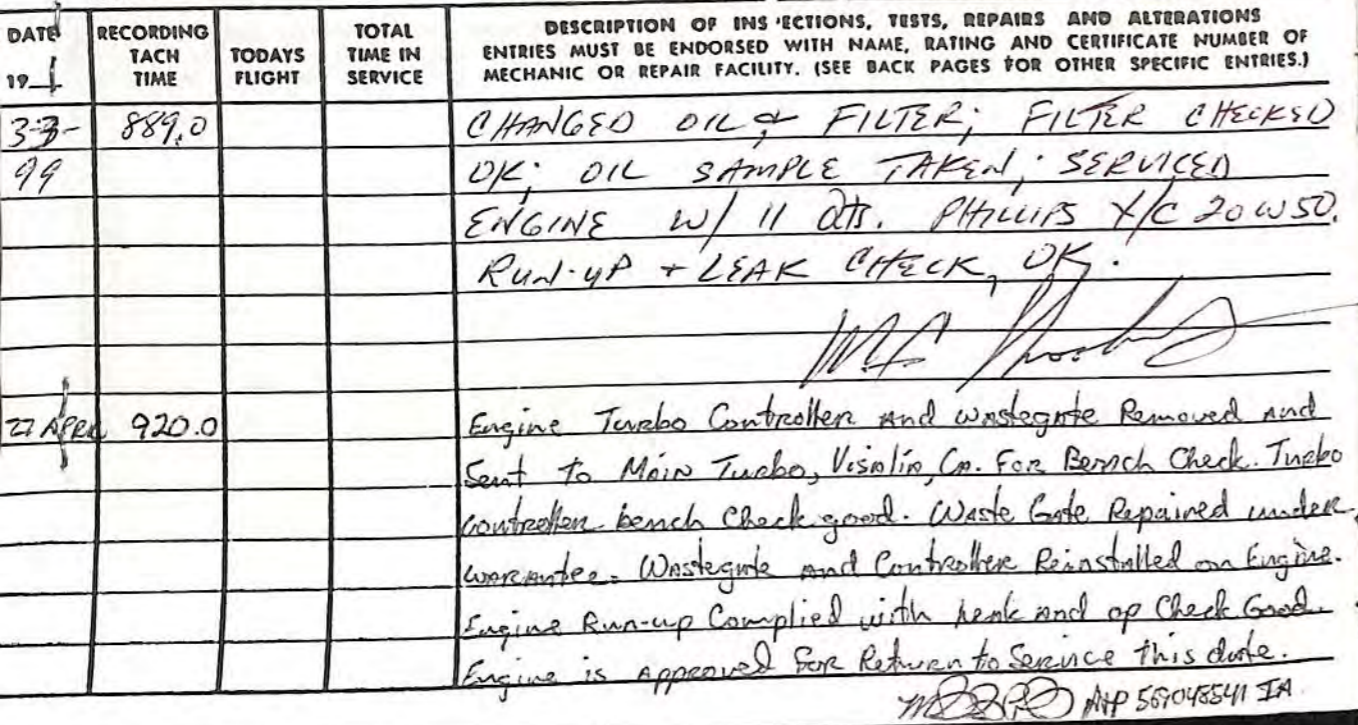 DATE
19
RECORDING
TACH
TIME
TODAYS
FLIGHT
TOTAL
TIME IN
SERVICE
DESCRIPTION OF INS ECTIONS, TESTS, REPAIRS AND ALTERATIONS
ENTRIES MUST BE ENDORSED WITH NAME, RATING AND CERTIFICATE NUMBER OF
MECHANIC OR REPAIR FACILITY. (SEE BACK PAGES FOR OTHER SPECIFIC ENTRIES.)
3-3- 889.0 CHANGED OIL & FILTER; FILTER CHECKED
99 OK; OIL SAMPLE TAKEN; SERVICED
ENGINE W/ 11 Qts. PHILLIPS X/C 20W50.
RUN-UP + LEAK CHECK, OK.
27 APRIL 920.0 Engine Turbo Controller and wastegate Removed and
Sent to Main Turbo, Visalia, Ca. For Bench Check. Turbo
Controller bench Check good. Waste Gate Repaired under
warrantee. Wastegate and Controller Reinstalled on Engine.
Engine Run-up Complied with leak and op Check Good.
Engine is Approved For Return to Service this date.
A+P 569048541 IA